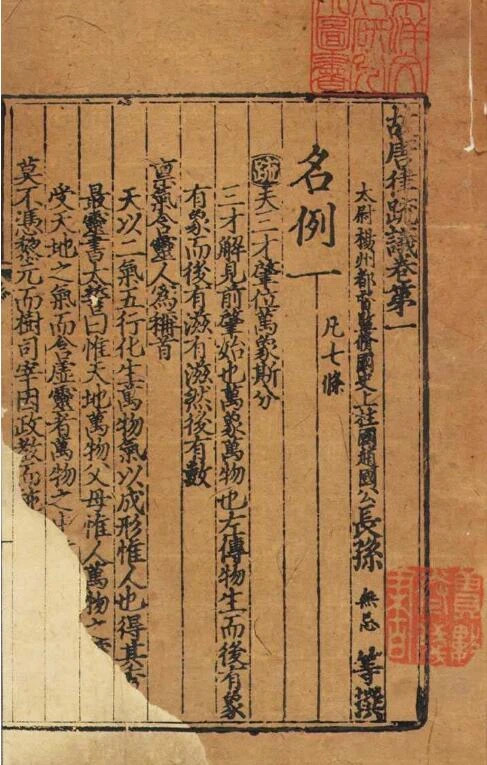 故唐律疏議卷第一
太尉楊州都督監脩國史上柱國趙國公長孫無忌等撰
名例一
凡七條
疏夫三才肇位萬象斯分
三才解見前肇始也萬象萬物也左傳物生而後有象
有象而後有滋有滋然後有數
稟氣含靈人爲稱首
天以二氣五行化生萬物氣以成形惟人也得其
最靈書太誓曰惟天地萬物父母惟人萬物之
受天地之氣而含虛靈者萬物之
莫不憑黎元而樹司宰因政教而